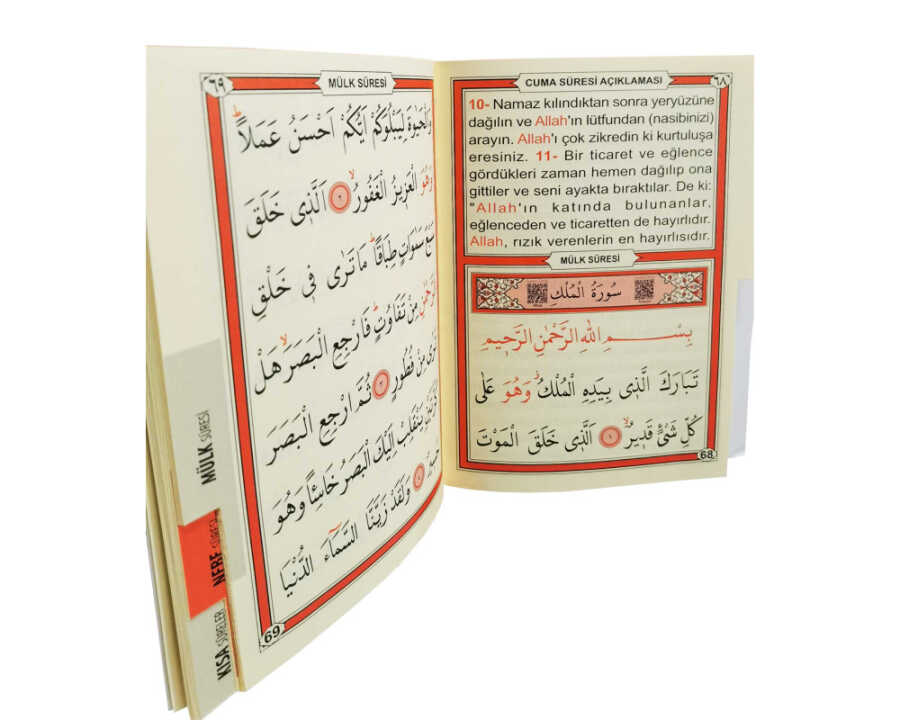 CUMA SÛRESİ AÇIKLAMASI
٦٨
10- Namaz kılındıktan sonra yeryüzüne
dağılın ve Allah'ın lütfundan (nasibinizi)
arayın. Allah'ı çok zikredin ki kurtuluşa
eresiniz. 11- Bir ticaret ve eğlence
gördükleri zaman hemen dağılıp ona
gittiler ve seni ayakta bıraktılar. De ki:
"Allah'ın katında bulunanlar,
eğlenceden ve ticaretten de hayırlıdır.
Allah, rızık verenlerin en hayırlısıdır.
MÜLK SÛRESİ
سُورَةُ الْمُلْكِ
بِسْــــمِ اللهِ الرَّحْمٰنِ الرَّحِيمِ
تَبَارَكَ الَّذٖى بِيَدِهِ الْمُلْكُ وَهُوَ عَلٰى
كُلِّ شَیْءٍ قَدٖيرٌ ۙ ١ اَلَّذٖى خَلَقَ الْمَوْتَ
68
٦٩
MÜLK SÛRESİ
وَالْحَيٰوةَ لِيَبْلُوَكُمْ اَيُّكُمْ اَحْسَنُ عَمَلاً ؕ
وَهُوَ الْعَزٖيزُ الْغَفُورُ ۙ ٢ اَلَّذٖى خَلَقَ
سَبْعَ سَمٰوَاتٍ طِبَاقًا ؕ مَا تَرٰى فٖى خَلْقِ
الرَّحْمٰنِ مِنْ تَفَاوُتٍ ؕ فَارْجِعِ الْبَصَرَ ۙ هَلْ
تَرٰى مِنْ فُطُورٍ ٣ ثُمَّ ارْجِعِ الْبَصَرَ
كَرَّتَيْنِ يَنْقَلِبْ اِلَيْكَ الْبَصَرُ خَاسِئًا وَهُوَ
حَسٖيرٌ ٤ وَلَقَدْ زَيَّنَّا السَّمَٓاءَ الدُّنْيَا
69
MÜLK SÛRESİ
NEBE SÛRESİ
KISA SÛRELER